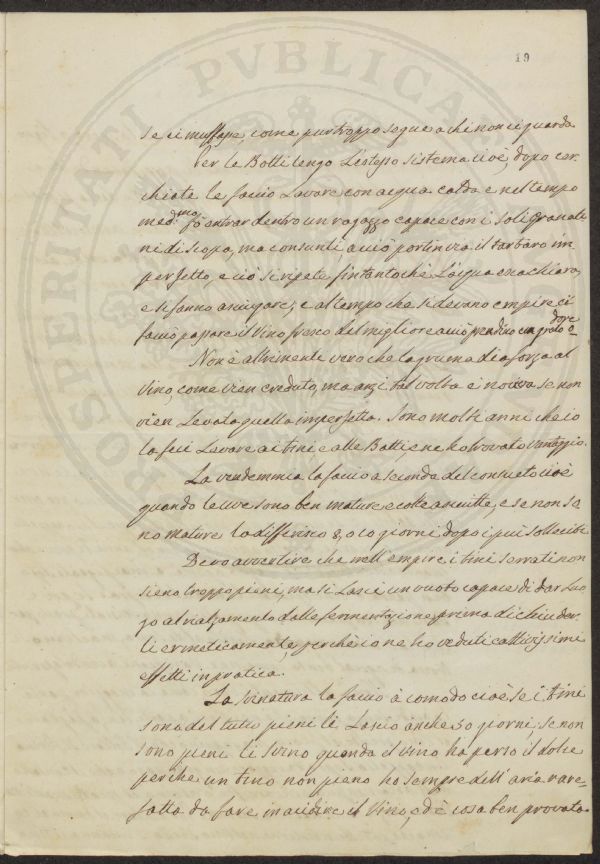 19
se ci muffasse, come purtroppo segue a chi non ci guarda.
Per le Botti tengo l'istesso sistema cioè, dopo cer-
chiate le faccio Lavare con acqua calda e nel tempo
med.mo fò entrar dentro un ragazzo capace con i soliti granati-
ni di scopa, ma consunti, acciò porti via il tartaro im
perfetto, e ciò si ripete fintantoché L'acqua esca chiara,
e si fanno asciugare; e al tempo che si devano empire ci
faccio passare il Vino fresco del migliore acciò prendino un grato odore
Non è altrimente vero che la gruma dia forza al
Vino, come vien creduto, ma anzi tal volta è nociva se non
vien Levata quella imperfetta. Sono molti anni che io
la feci Levare ai tini e alle Botti e ne ho trovato vantaggio.
La vendemmia la faccio a seconda del consueto cioè
quando le uve sono ben mature e colte asciutte, e se non so
no mature la differisco 8, o 10 giorni dopo i più solleciti
Devo avvertire che nell'empire i tini serrati non
sieno troppo pieni, ma si Lasci un vuoto capace di dar Luo
go al rialzamento dalla fermentazione prima di chiuder-
li ermeticamente, perchè io ne ho veduti cattivissimi
effetti in pratica.
La svinatura la faccio a comodo cioè se i tini
sono del tutto pieni li Lascio anche 50 giorni, se non
sono pieni li svino quando il vino ha perso il dolce
perchè un tino non pieno ha sempre dell'aria rare=
fatta da fare inacidire il Vino, ed è cosa ben provata.
PROSPERITATI PVBLICAE